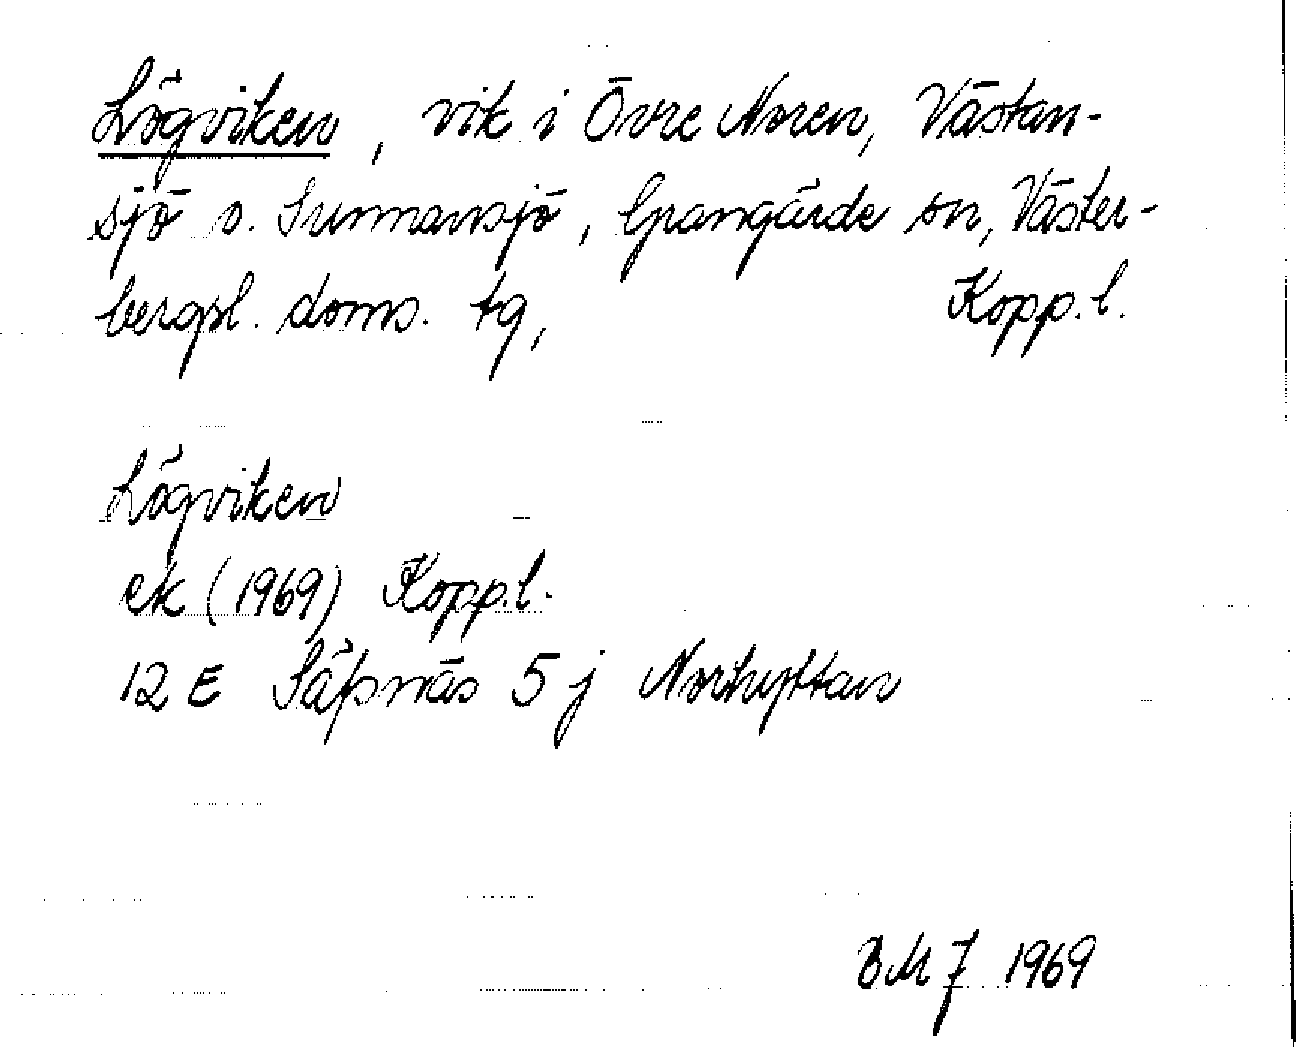 Lögviken, vik i Övre Noren, Västan-
sjö s. Sunnansjö, Grangärde sn, Väster-
bergsl. doms. tg, Kopp. l.
Lögviken
ek (1969) Kopp. l.
12 E Säfsnäs 5 j Norhyttan
BM7 1969